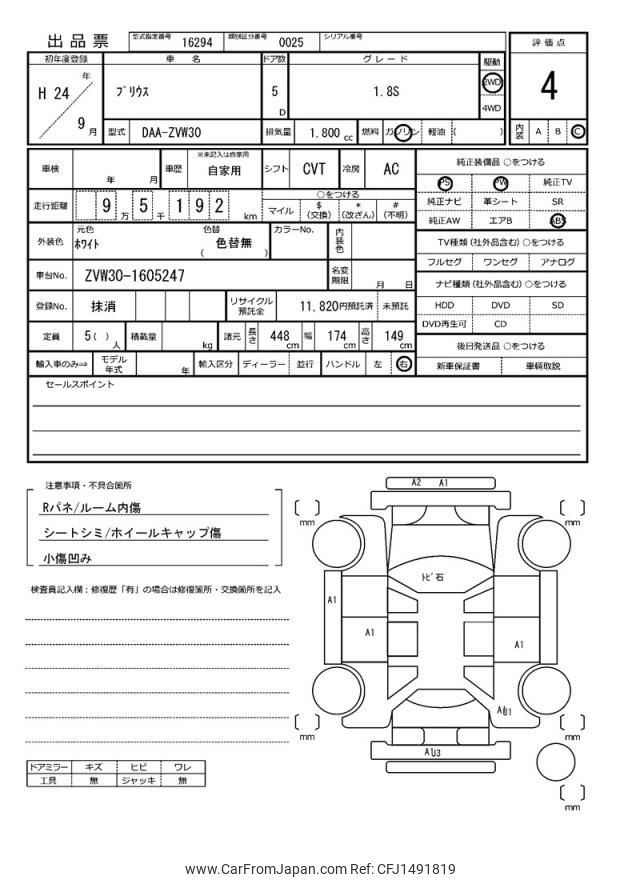 出品票 型式指定番号 16294 類別区分番号 0025 シリアル番号
評価点
4
内装 A B C
初年度登録 車名 ドア数 グレード 駆動
H 24 年 9 月
プリウス 5 D 1.8S 2WD 4WD
型式 DAA-ZVW30 排気量 1.800 cc 燃料 ガソリン 軽油 ( )
車検 年 月 車歴 ※未記入は自家用 自家用 シフト CVT 冷房 AC
走行距離 9 万 5 千 1 9 2 km
○をつける
マイル $(交換) *(改ざん) #(不明)
外装色 元色 ホワイト 色替 色替無 ( ) カラーNo. 内装色
車台No. ZVW30-1605247 名変期限 月 日
登録No. 抹消 リサイクル預託金 11,820円預託済 未預託
定員 5( )人 積載量 kg 諸元 長さ 448 cm 幅 174 cm 高さ 149 cm
輸入車のみ⇒ モデル年式 年 輸入区分 ディーラー 並行 ハンドル 左 右
純正装備品 ○をつける
PS PW 純正TV
純正ナビ 革シート SR
純正AW エアB ABS
TV種類(社外品含む)○をつける
フルセグ ワンセグ アナログ
ナビ種類(社外品含む)○をつける
HDD DVD SD
DVD再生可 CD
後日発送品 ○をつける
新車保証書 車輌取説
セールスポイント
注意事項・不具合箇所
Rパネ/ルーム内傷
シートシミ/ホイールキャップ傷
小傷凹み
検査員記入欄：修復歴「有」の場合は修復箇所・交換箇所を記入
ドアミラー キズ ヒビ ワレ
工具 無 ジャッキ 無
A2 A1
mm
mm
トビ石
A1
A1
A1
AU1
mm
mm
AU3
mm
www.CarFromJapan.com Ref: CFJ1491819